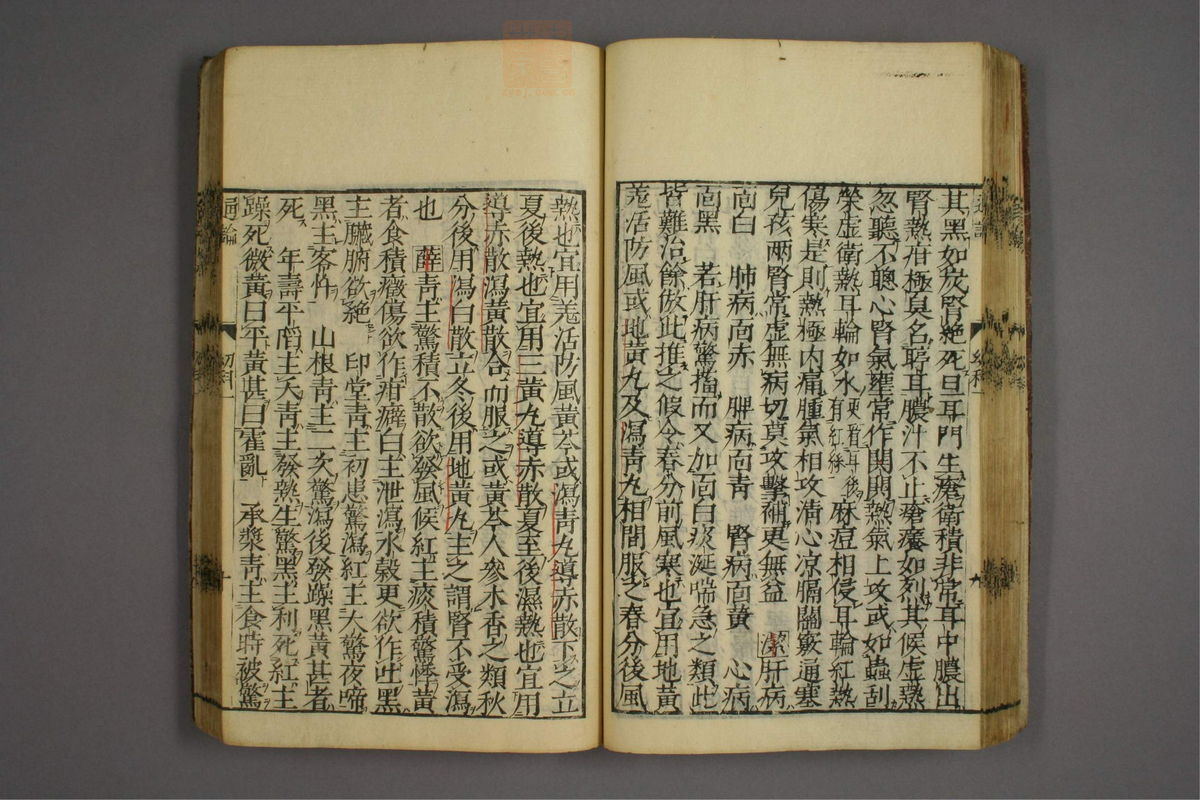 其黑如炭腎絶死旦耳門生瘡衛積非常耳中膿出
腎熱疳極臭名聤耳膿汁不止瘡癢如烈其候虛熱
忽聽不聰心腎氣壅常作閧閧熱氣上攻或如蟲刮
榮虛衛熱耳輪如水更看耳後有紅絲麻痘相侵耳輪紅熱
傷寒是則熱極内痛腫氣相攻清心凉膈關竅通塞
兒孩兩腎常虛無病切莫攻擊補更無益 潔肝病
面白 肺病面赤 脾病面青 腎病面黄 心病
面黑 若肝病驚搐而又加面白痰涎喘急之類此
皆難治餘倣此推之假令春分前風寒也宜用地黄
羗活防風或地黄丸及瀉青丸相間服之春分後風
熱也宜用羗活防風黄芩或瀉青丸導赤散下之立
夏後熱也宜用三黄丸導赤散夏至後濕熱也宜用
導赤散瀉黄散合而服之或黄芩人參木香之類秋
分後用瀉白散立冬後用地黄丸主之謂腎不受瀉
也 薛青主驚積不散欲發風候紅主痰積驚悸黄
者食積癥傷欲作疳癖白主泄瀉水穀更欲作吐黑
主臟腑欲絶 印堂青主初患驚瀉紅主大驚夜啼
黑主客忤 山根青主二次驚瀉後發躁黑黄甚者
死 年壽平䧟主夭青主發熱生驚黑主利死紅主
躁死微黄曰平黄甚曰霍亂 承漿青主食時被驚